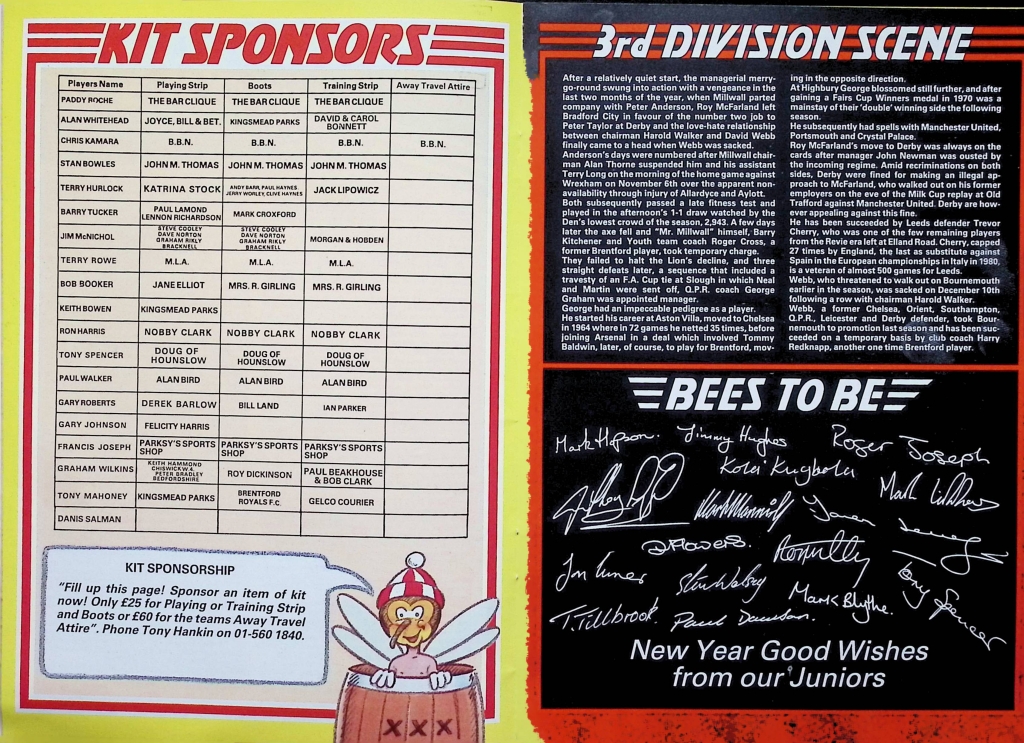 KIT SPONSORS
Players Name Playing Strip Boots Training Strip Away Travel Attire
PADDY ROCHE THE BAR CLIQUE THE BAR CLIQUE THE BAR CLIQUE
ALAN WHITEHEAD JOYCE, BILL & BET. KINGSMEAD PARKS DAVID & CAROL BONNETT
CHRIS KAMARA B.B.N. B.B.N. B.B.N. B.B.N.
STAN BOWLES JOHN M. THOMAS JOHN M. THOMAS JOHN M. THOMAS
TERRY HURLOCK KATRINA STOCK ANDY BARR, PAUL HAYNES JERRY WORLEY, CLIVE HAYNES JACK LIPOWICZ
BARRY TUCKER PAUL LAMOND LENNON RICHARDSON MARK CROXFORD
JIM McNICHOL STEVE COOLEY DAVE NORTON GRAHAM RIKLY BRACKNELL STEVE COOLEY DAVE NORTON GRAHAM RIKLY BRACKNELL MORGAN & HOBDEN
TERRY ROWE M.L.A. M.L.A. M.L.A.
BOB BOOKER JANE ELLIOT MRS. R. GIRLING MRS. R. GIRLING
KEITH BOWEN KINGSMEAD PARKS
RON HARRIS NOBBY CLARK NOBBY CLARK NOBBY CLARK
TONY SPENCER DOUG OF HOUNSLOW DOUG OF HOUNSLOW DOUG OF HOUNSLOW
PAUL WALKER ALAN BIRD ALAN BIRD ALAN BIRD
GARY ROBERTS DEREK BARLOW BILL LAND IAN PARKER
GARY JOHNSON FELICITY HARRIS
FRANCIS JOSEPH PARKSY'S SPORTS SHOP PARKSY'S SPORTS SHOP PARKSY'S SPORTS SHOP
GRAHAM WILKINS KEITH HAMMOND CHISWICK W.4. PETER BRADLEY BEDFORDSHIRE ROY DICKINSON PAUL BEAKHOUSE & BOB CLARK
TONY MAHONEY KINGSMEAD PARKS BRENTFORD ROYALS F.C. GELCO COURIER
DANIS SALMAN
KIT SPONSORSHIP
"Fill up this page! Sponsor an item of kit
now! Only £25 for Playing or Training Strip
and Boots or £60 for the teams Away Travel
Attire". Phone Tony Hankin on 01-560 1840.
XXX
3rd DIVISION SCENE
After a relatively quiet start, the managerial merry-
go-round swung into action with a vengeance in the
last two months of the year, when Millwall parted
company with Peter Anderson, Roy McFarland left
Bradford City in favour of the number two job to
Peter Taylor at Derby and the love-hate relationship
between chairman Harold Walker and David Webb
finally came to a head when Webb was sacked.
Anderson's days were numbered after Millwall chair-
man Alan Thorne suspended him and his assistant
Terry Long on the morning of the home game against
Wrexham on November 6th over the apparent non-
availability through injury of Allardyce and Aylott.
Both subsequently passed a late fitness test and
played in the afternoon's 1-1 draw watched by the
Den's lowest crowd of the season, 2,943. A few days
later the axe fell and "Mr. Millwall" himself, Barry
Kitchener and Youth team coach Roger Cross, a
former Brentford player, took temporary charge.
They failed to halt the Lion's decline, and three
straight defeats later, a sequence that included a
travesty of an F.A. Cup tie at Slough in which Neal
and Martin were sent off, Q.P.R. coach George
Graham was appointed manager.
George had an impeccable pedigree as a player.
He started his career at Aston Villa, moved to Chelsea
in 1964 where in 72 games he netted 35 times, before
joining Arsenal in a deal which involved Tommy
Baldwin, later, of course, to play for Brentford, mov-
ing in the opposite direction.
At Highbury George blossomed still further, and after
gaining a Fairs Cup Winners medal in 1970 was a
mainstay of their 'double' winning side the following
season.
He subsequently had spells with Manchester United,
Portsmouth and Crystal Palace.
Roy McFarland's move to Derby was always on the
cards after manager John Newman was ousted by
the incoming regime. Amid recriminations on both
sides, Derby were fined for making an illegal app-
roach to McFarland, who walked out on his former
employers on the eve of the Milk Cup replay at Old
Trafford against Manchester United. Derby are how-
ever appealing against this fine.
He has been succeeded by Leeds defender Trevor
Cherry, who was one of the few remaining players
from the Revie era left at Elland Road. Cherry, capped
27 times by England, the last as substitute against
Spain in the European championships in Italy in 1980,
is a veteran of almost 500 games for Leeds.
Webb, who threatened to walk out on Bournemouth
earlier in the season, was sacked on December 10th
following a row with chairman Harold Walker.
Webb, a former Chelsea, Orient, Southampton,
Q.P.R., Leicester and Derby defender, took Bour-
nemouth to promotion last season and has been suc-
ceeded on a temporary basis by club coach Harry
Redknapp, another one time Brentford player.
BEES TO BE
Mark Hopson. Jimmy Hughes Roger Joseph
D. Flowers.
Tony Spencer
Mark Blythe.
T. Tillbrook. Paul Davison.
New Year Good Wishes
from our Juniors